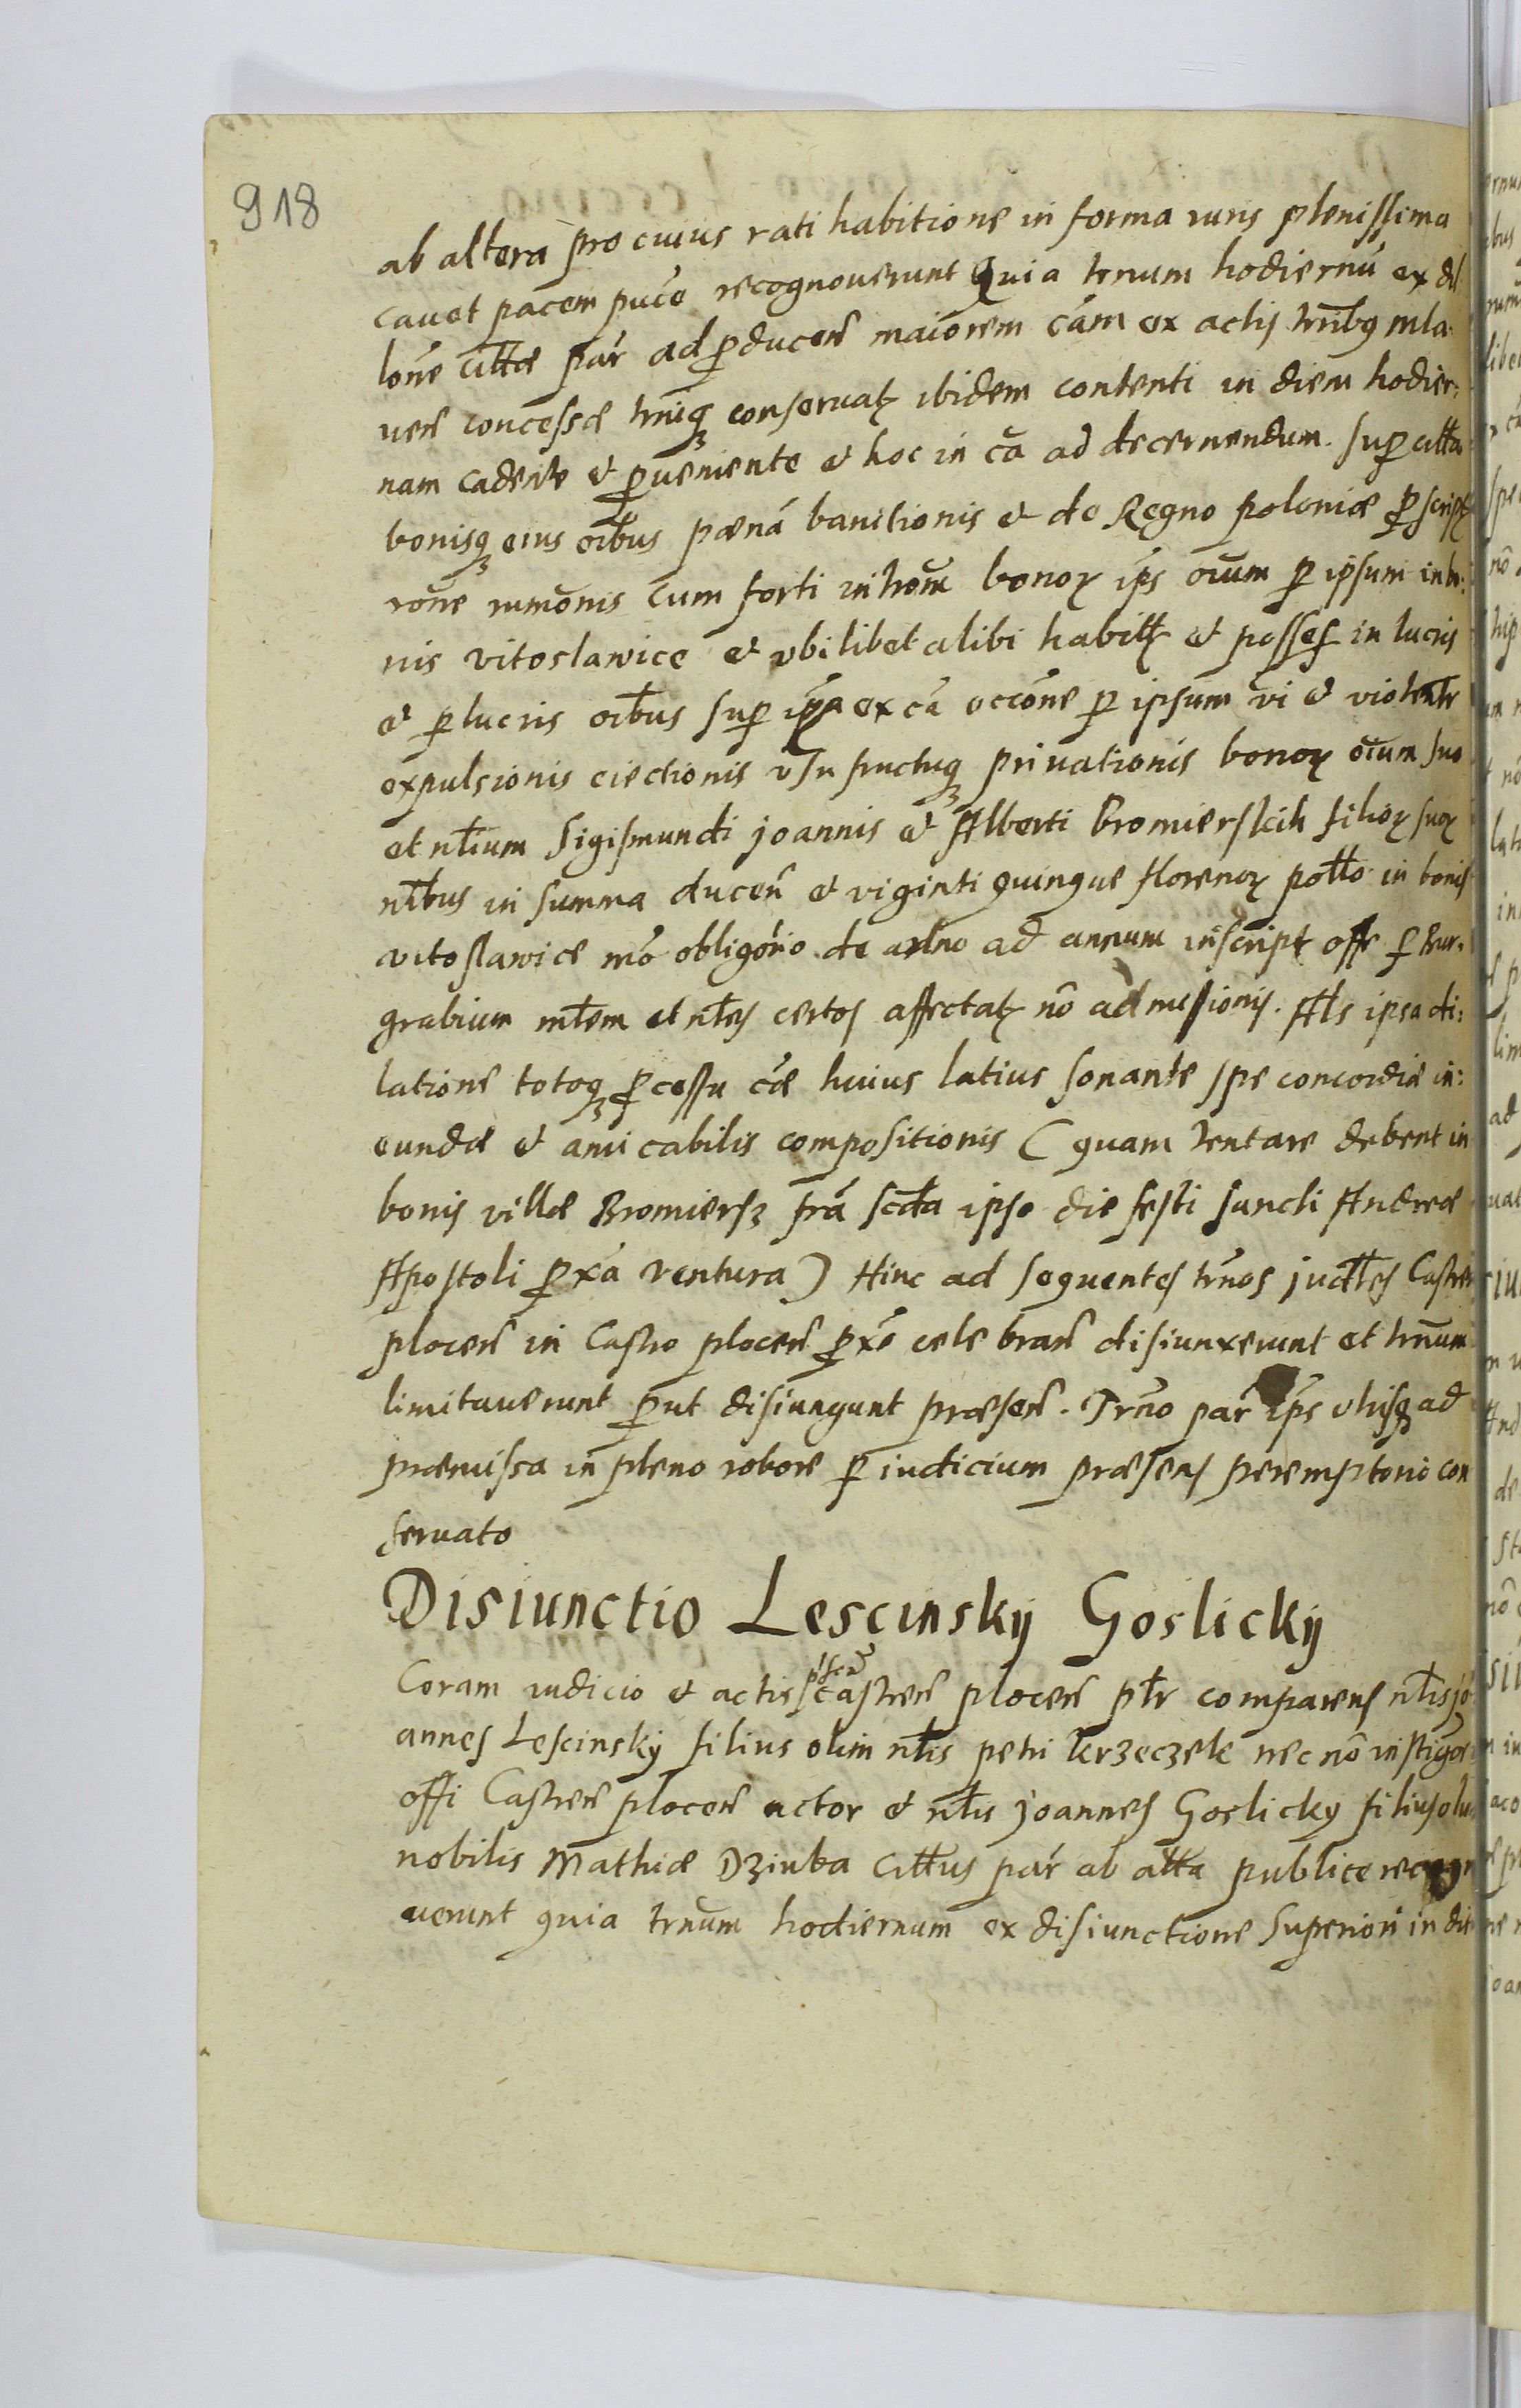 918
ab altera pro cuius rati habitione in forma iuris plenissima
cavet pacem puce recognoverunt Quia trnum hodiernu ex di
lone cittae par ad p̱ducen maiorem cam ex actis trnibq mla
ven concessae trniq conservat ibidem contenti in diem hodier:
nam cadente et p̱veniente et hoc in ca ad decernendum. sup citta
bonisq eius oibus paena banitionis et de Regno poloniae p̱script
rone cum forti bonor ips oium p ipsum in
nis vitoslawice et ubilibet alibi habitt et posses in lucris
et p lucris oibus sup ex ca occone p ipsum vi et violente
expulsionis eiectionis usu fructuq privationis bonor oium suo
et nlium Sigismundi joannis et Alberti Bromierskich filior suor
nlibus in summa ducen et viginti quinque florenor pollo in bonis
vitoslawice mo obligorio de anno ad annum inscript offe p Bur:
grabium mlem et nles certos affectat no admissionis. Als ipsa di:
latione totoq p̱cessu cae huius latius sonante spe concordiae in:
eundae et amicabilis compositionis (quam tentare debent in
bonis villae Bromiersz fra scda ipso die festi sancti Andreae
Apostoli p̱xa ventura) Hinc ad sequentes trnos judles Castren
plocen in Castro plocen p̱xe celebran disiunxerunt et trnum
limitaverunt p̱ut disiungunt praesen. Trno par ips utrisq ad
praemissa in pleno robore p iudicium praesens peremptorio con
servato
Disiunctio Lescinskij Goslickij
Coram iudicio et actis castren plocen pltr comparens nlis jo
annes Lescinsky filius olim nlis petri krzeczek nec no instigor
offi Castren plocen actor et nlis joannes Goslicky filius oli
nobilis Mathiae Dziuba Cittus par ab alta publice recogn
verunt quia trnum hodiernum ex disiunctione superiori in die